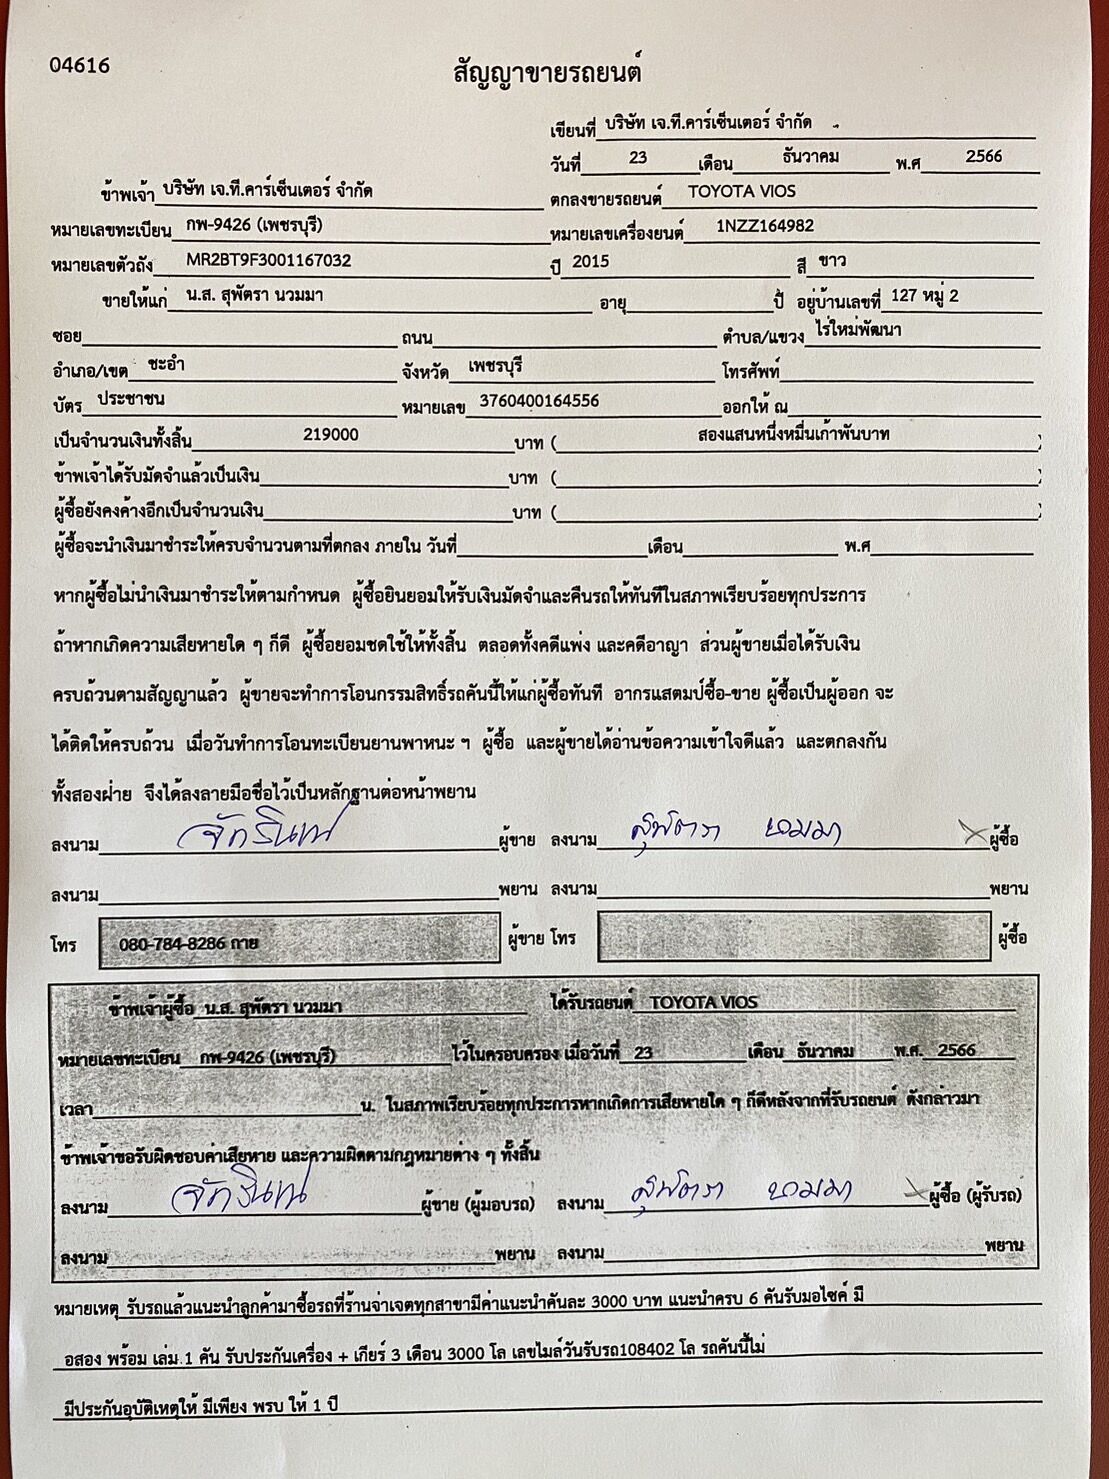 04616
สัญญาขายรถยนต์
เขียนที่ บริษัท เจ.ที.คาร์เซ็นเตอร์ จำกัด
วันที่ 23 เดือน ธันวาคม พ.ศ 2566
ข้าพเจ้า บริษัท เจ.ที.คาร์เซ็นเตอร์ จำกัด ตกลงขายรถยนต์ TOYOTA VIOS
หมายเลขทะเบียน กพ-9426 (เพชรบุรี) หมายเลขเครื่องยนต์ 1NZZ164982
หมายเลขตัวถัง MR2BT9F3001167032 ปี 2015 สี ขาว
ขายให้แก่ น.ส. สุพัตรา นวมมา อายุ ปี อยู่บ้านเลขที่ 127 หมู่ 2
ซอย ถนน ตำบล/แขวง ไร่ใหม่พัฒนา
อำเภอ/เขต ชะอำ จังหวัด เพชรบุรี โทรศัพท์
บัตร ประชาชน หมายเลข 3760400164556 ออกให้ ณ
เป็นจำนวนเงินทั้งสิ้น 219000 บาท ( สองแสนหนึ่งหมื่นเก้าพันบาท )
ข้าพเจ้าได้รับมัดจำแล้วเป็นเงิน บาท ( )
ผู้ซื้อยังคงค้างอีกเป็นจำนวนเงิน บาท ( )
ผู้ซื้อจะนำเงินมาชำระให้ครบจำนวนตามที่ตกลง ภายใน วันที่ เดือน พ.ศ
หากผู้ซื้อไม่นำเงินมาชำระให้ตามกำหนด ผู้ซื้อยินยอมให้รับเงินมัดจำและคืนรถให้ทันทีในสภาพเรียบร้อยทุกประการ
ถ้าหากเกิดความเสียหายใด ๆ ก็ดี ผู้ซื้อยอมชดใช้ให้ทั้งสิ้น ตลอดทั้งคดีแพ่ง และคดีอาญา ส่วนผู้ขายเมื่อได้รับเงิน
ครบถ้วนตามสัญญาแล้ว ผู้ขายจะทำการโอนกรรมสิทธิ์รถคันนี้ให้แก่ผู้ซื้อทันที อากรแสตมป์ซื้อ-ขาย ผู้ซื้อเป็นผู้ออก จะ
ได้ติดให้ครบถ้วน เมื่อวันทำการโอนทะเบียนยานพาหนะ ฯ ผู้ซื้อ และผู้ขายได้อ่านข้อความเข้าใจดีแล้ว และตกลงกัน
ทั้งสองฝ่าย จึงได้ลงลายมือชื่อไว้เป็นหลักฐานต่อหน้าพยาน
ลงนาม จักรินทร์ ผู้ขาย ลงนาม สุพัตรา นวมมา ผู้ซื้อ
ลงนาม พยาน ลงนาม พยาน
โทร 080-784-8286 กาย ผู้ขาย โทร ผู้ซื้อ
ข้าพเจ้าผู้ซื้อ น.ส. สุพัตรา นวมมา ได้รับรถยนต์ TOYOTA VIOS
หมายเลขทะเบียน กพ-9426 (เพชรบุรี) ไว้ในครอบครอง เมื่อวันที่ 23 เดือน ธันวาคม พ.ศ. 2566
เวลา น. ในสภาพเรียบร้อยทุกประการหากเกิดการเสียหายใด ๆ ก็ดีหลังจากที่รับรถยนต์ ดังกล่าวมา
ข้าพเจ้าขอรับผิดชอบค่าเสียหาย และความผิดตามกฎหมายต่าง ๆ ทั้งสิ้น
ลงนาม จักรินทร์ ผู้ขาย (ผู้มอบรถ) ลงนาม สุพัตรา นวมมา ผู้ซื้อ (ผู้รับรถ)
ลงนาม พยาน ลงนาม พยาน
หมายเหตุ รับรถแล้วแนะนำลูกค้ามาซื้อรถที่ร้านจ่าเจตทุกสาขามีค่าแนะนำคันละ 3000 บาท แนะนำครบ 6 คันรับมอไซค์ มี
อสอง พร้อม เล่ม 1 คัน รับประกันเครื่อง + เกียร์ 3 เดือน 3000 โล เลขไมล์วันรับรถ108402 โล รถคันนี้ไม่
มีประกันอุบัติเหตุให้ มีเพียง พรบ ให้ 1 ปี